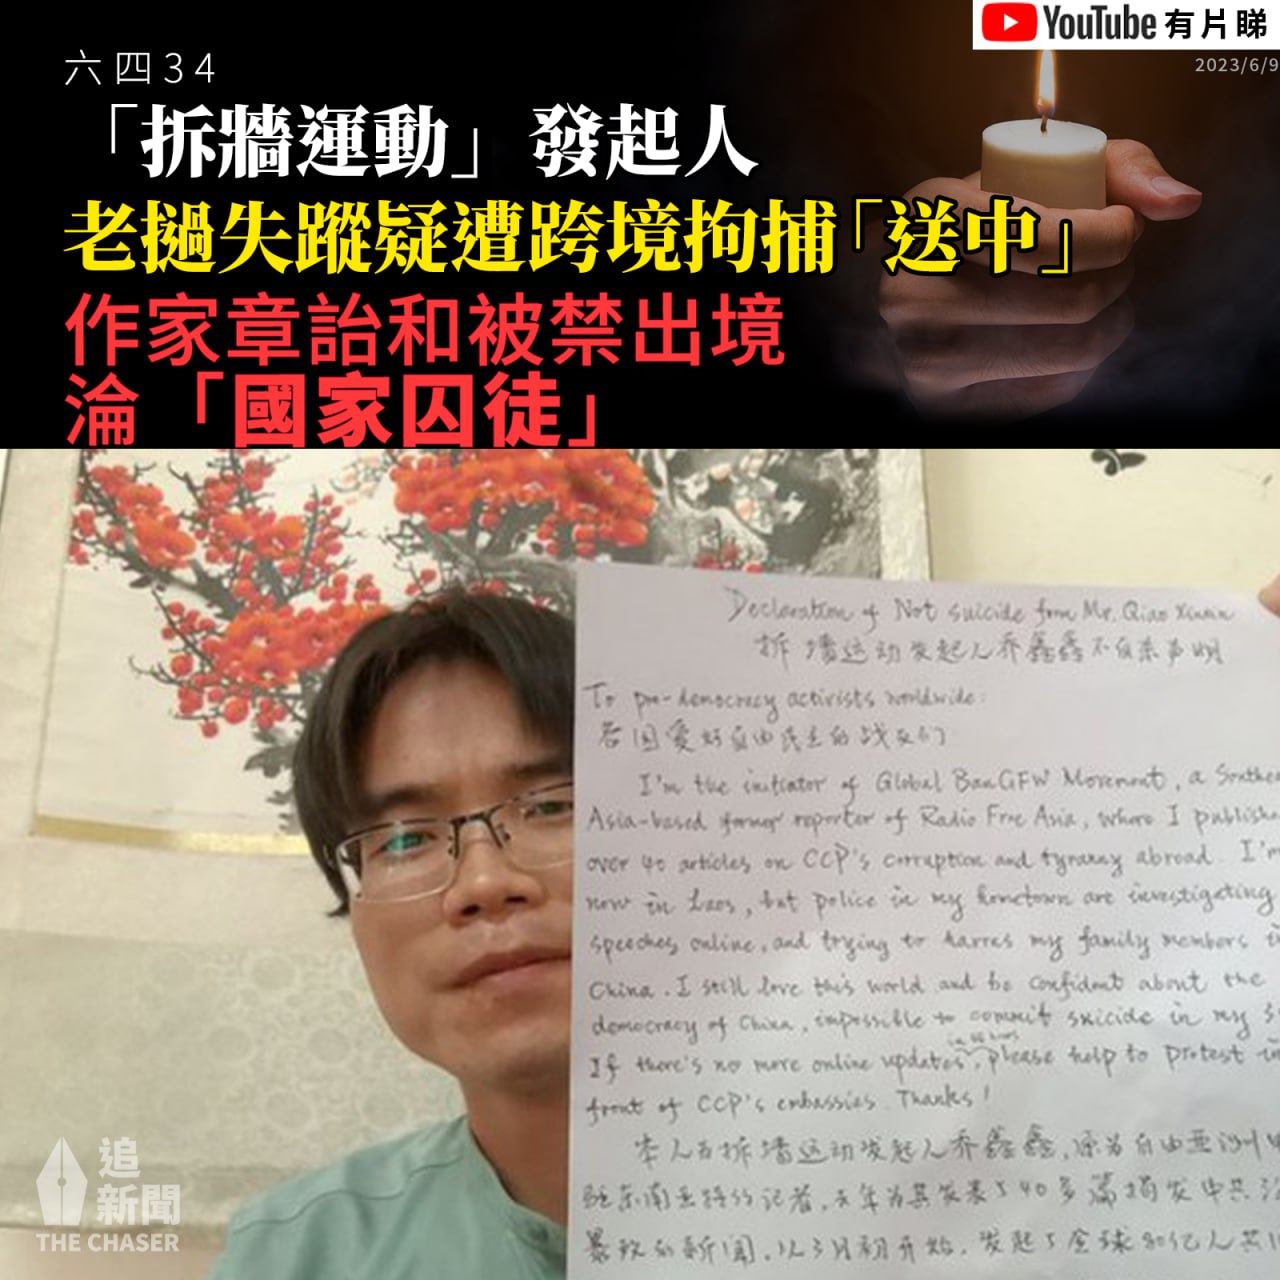 YouTube 有片睇
2023/6/9
六四34
「拆牆運動」發起人
老撾失蹤疑遭跨境拘捕「送中」
作家章詒和被禁出境
淪「國家囚徒」
Declaration of Not suicide from Mr. Qiao Xinxin
拆墙运动发起人乔鑫鑫不自杀声明
To pro-democracy activists worldwide:
各国爱好自由民主的战友们
I'm the initiator of Global BanGFW Movement, a
Asia-based former reporter of Radio Free Asia, where I
over 40 articles on CCP's corruption and tyranny abroad. I'm
now in Laos, but police in my hometown are investigating
speeches online, and trying to harres my family members
China. I still love this world and be confident about the
democracy of China, impossible to commit suicide in my
If there's no more online updates, please help to protest in
front of CCP's embassies. Thanks!
本人为拆墙运动发起人乔鑫鑫,原为自由亚洲
驻东南亚特约记者,去年为其发表了40多篇揭发中共
暴政的新闻,从3月初开始,发起了全球80亿人共
追
新聞
THE CHASER